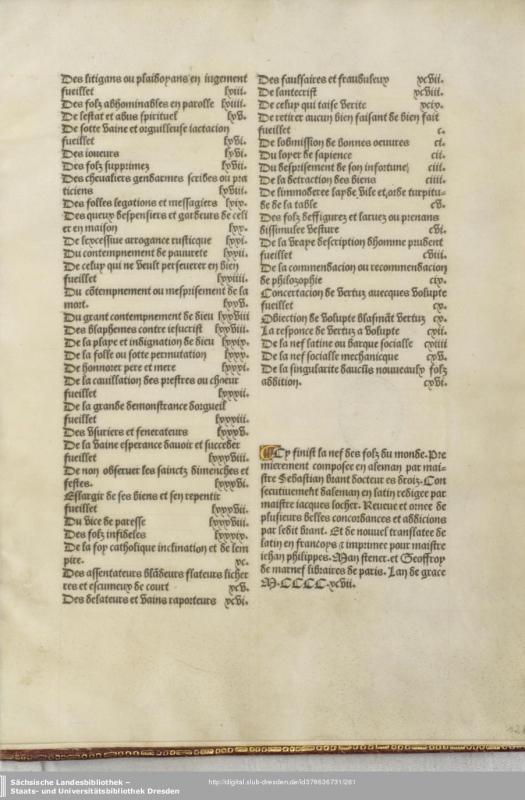 Des litigans ou plaidoyans en iugement
fueillet lxiii.
Des folz abhominables en parolle lxiiii.
De lestat et abus spirituel lxv.
De sotte vaine et orguilleuse iactacion
fueillet lxvi.
Des ioueurs lxvi.
Des folz supprimez lxvii.
Des cheualiers gendarmes scribes ou pra
ticiens lxviii.
Des folles legations et messagiers lxix.
Des queux despensiers et gardeurs de celi
er en maison lxx.
De lexcessiue arrogance rusticque lxxi.
Du contempnement de pauurete lxxii.
De celuy qui ne veult perseuerer en bien
fueillet lxxiiii.
Du cōtempnement ou mesprisement de la
mort. lxxv.
Du grant contempnement de dieu lxxviii
Des blasphemes contre iesucrist lxxviii.
De la playe et indignation de dieu lxxix.
De la folle ou sotte permutation lxxx.
De honnorer pere et mere lxxxi.
De la cauillation des prestres ou choeur
fueillet lxxxii.
De la grande demonstrance dorgueil
fueillet lxxxiii.
Des vsuriers et fenerateurs lxxxv.
De la vaine esperance dauoir et succeder
fueillet lxxxiii.
De non obseruer les sainctz dimenches et
festes. lxxxvi.
Eslargir de ses biens et sen repentir
fueillet lxxxvii.
Du vice de paresse lxxxviii.
Des folz infideles lxxxix.
De la foy catholique inclination et de lem
pire. xc.
Des assentateurs blādeurs flateurs licher
res et escumeux de court xcv.
Des delateurs et vains raporteurs xcvi.
Des faulsaires et frauduleux xcvii.
De lantecrist xcviii.
De celuy qui taise verite xcix.
De retirer aucun bien faisant de bien fait
fueillet c.
De lobmission de bonnes oeuures ci.
Du loyer de sapience cii.
Du desprisement de son infortune ciii.
De la detraction des biens ciiii.
De limmoderee layde, vile et orde turpitu-
de de la table cv.
Des folz deffigurez et laruez ou prenans
dissimulee vesture cvi.
De la vraye description dhomme prudent
fueillet cviii.
De la commendacion ou recommendacion
de philozophie cix.
Concertacion de vertuz auecques volupte
fueillet cx.
Obiection de volupte blasmāt vertuz cx.
La responce de vertuz a volupte cxii.
De la nef latine ou barque socialle cxiiii
De la nef socialle mechanicque cxv.
De la singularite daucūs nouueaulx folz
addition. cxvi.
Cy finist la nef des folz du monde. Pre
mierement composee en aleman par mai-
stre Sebastian brant docteur es droiz. Con
secutiuement daleman en latin redigee par
maistre iacques locher. Reueue et ornee de
plusieurs belles concordances et addicions
par ledit brant. Et de nouuel translatee de
latin en francoys et imprimee pour maistre
iehan philippes. Man stener. et Geoffroy
de marnef libraires de paris. Lan de grace
M. CCCC. xcvii.
Sächsische Landesbibliothek –
Staats- und Universitätsbibliothek Dresden
http://digital.slub-dresden.de/id378636731/261